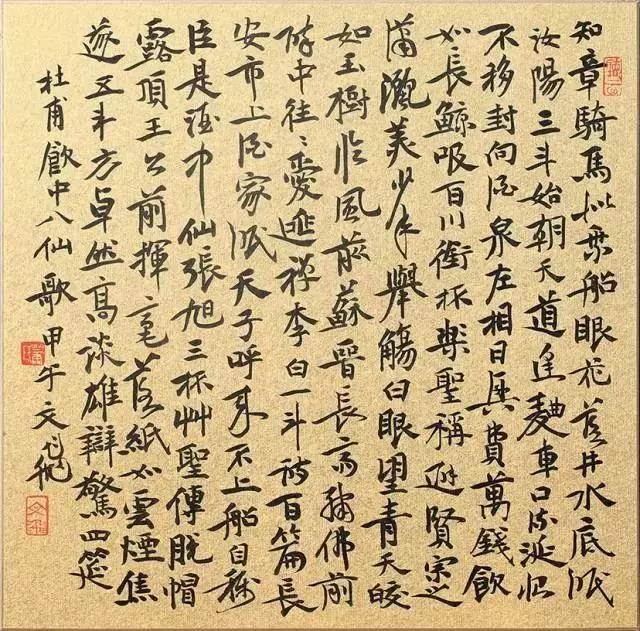 知章騎馬似乘船眼花落井水底眠
汝陽三斗始朝天道逢麴車口流涎恨
不移封向酒泉左相日興費萬錢飲
如長鯨吸百川銜杯樂聖稱避賢宗之
瀟灑美少年舉觴白眼望青天皎
如玉樹臨風前蘇晉長齋繡佛前
醉中往〻愛逃禪李白一斗詩百篇長
安市上酒家眠天子呼來不上船自稱
臣是酒中仙張旭三杯艸聖傳脫帽
露頂王公前揮毫落紙如雲煙焦
遂五斗方卓然高談雄辯驚四筵
杜甫飲中八仙歌甲午文飛